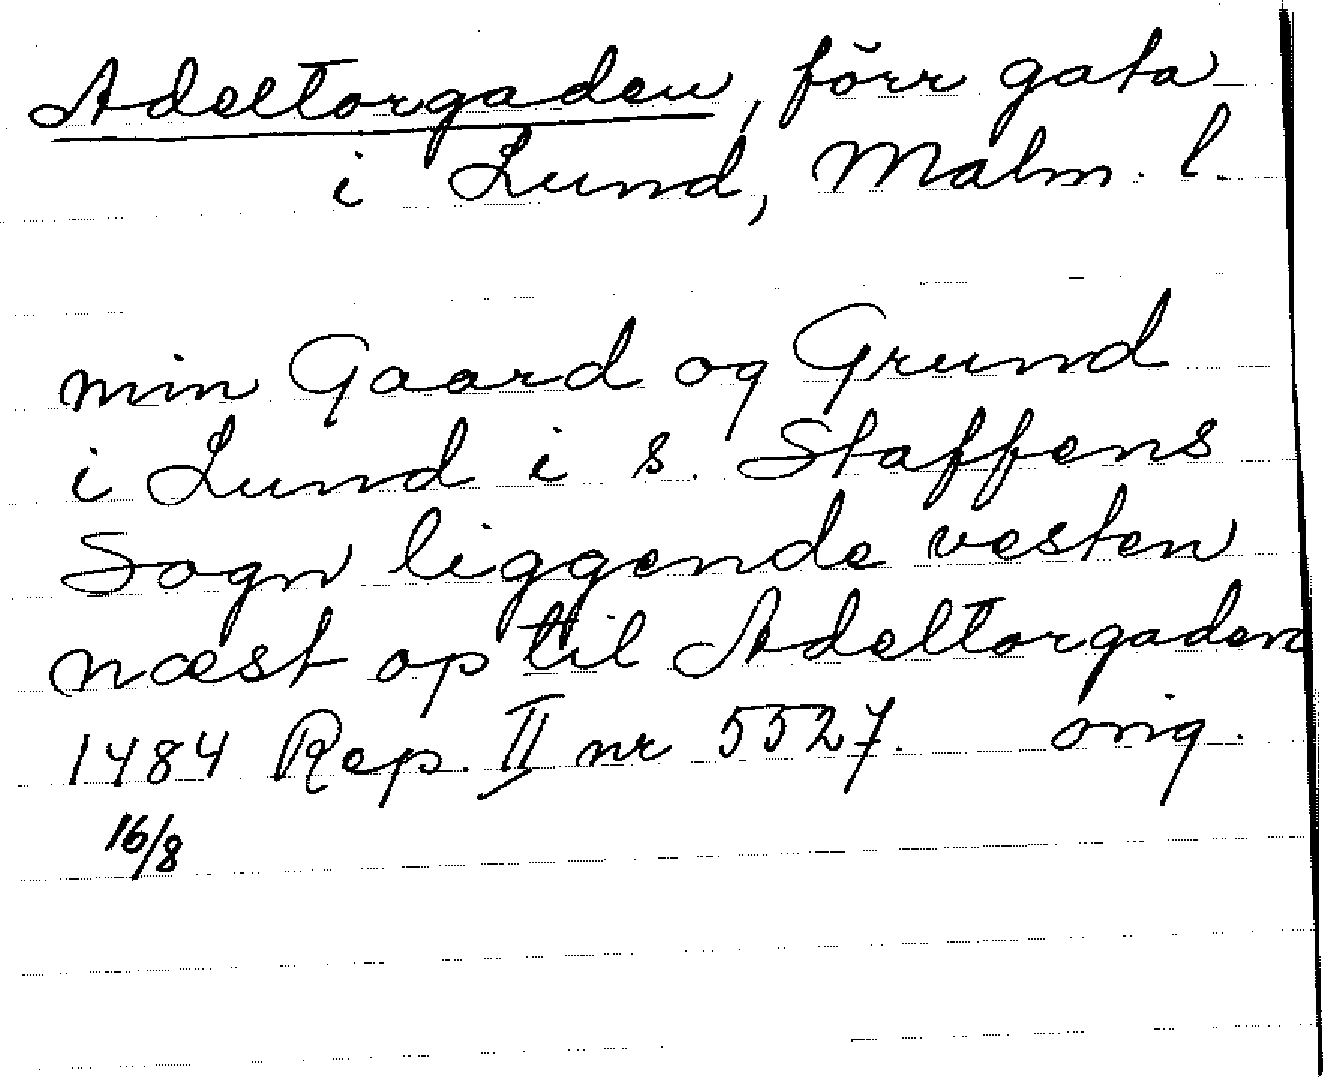 Adeltorgaden, förr gata
i Lund, Malm. l.
min Gaard og Grund
i Lund i s. Staffens
Sogn liggende vesten
næst op til Adeltorgaden
1484 Rep. II nr 5527. orig.
16/8